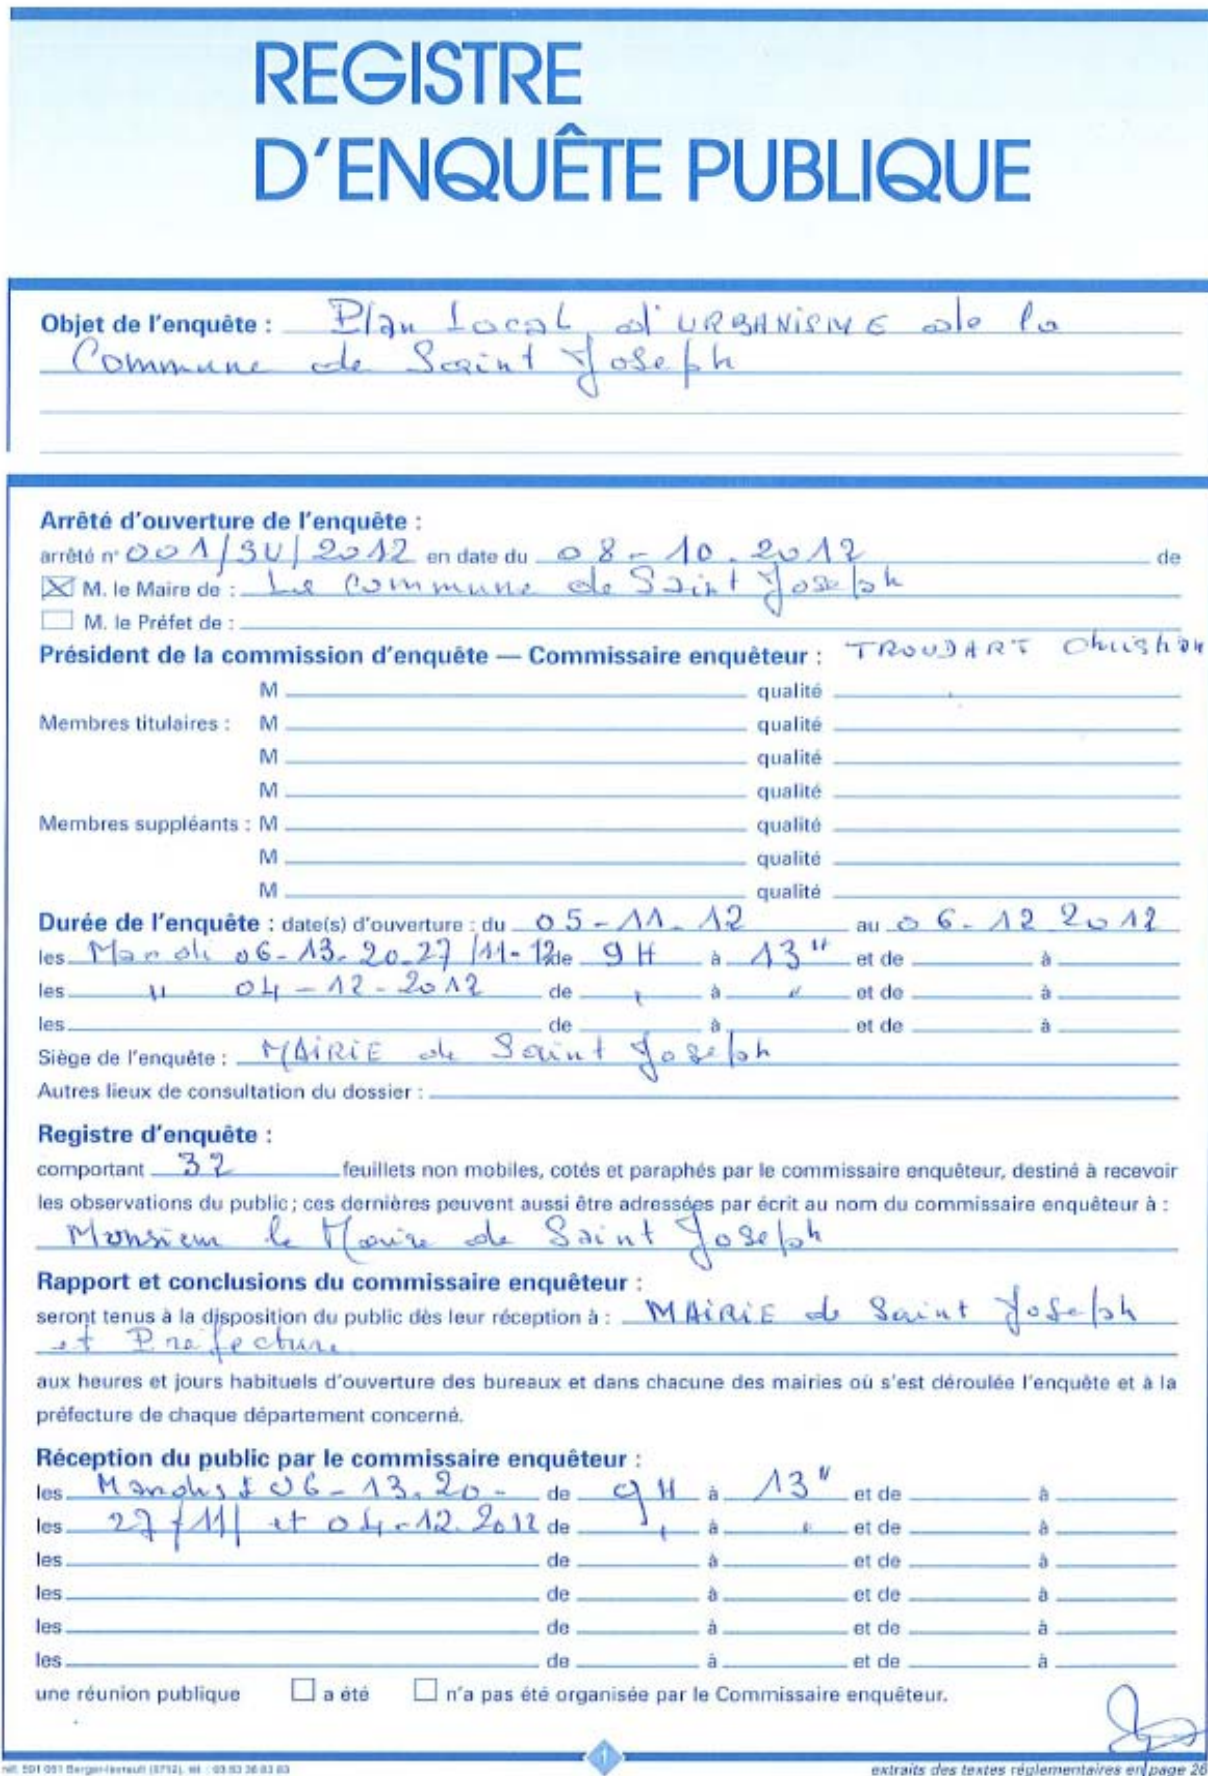 REGISTRE
D'ENQUÊTE PUBLIQUE
Objet de l'enquête : Plan Local d'URBANISME de la
Commune de Saint Joseph
Arrêté d'ouverture de l'enquête :
arrêté n° 001/SU/2012 en date du 08-10.2012 de
M. le Maire de : La Commune de Saint Joseph
M. le Préfet de :
Président de la commission d'enquête — Commissaire enquêteur : TROUDART Christian
M qualité
Membres titulaires : M qualité
M qualité
M qualité
Membres suppléants : M qualité
M qualité
M qualité
Durée de l'enquête : date(s) d'ouverture : du 05-11.12 au 06.12 2012
les Mardi 06-13.20-27/11-12 de 9H à 13H et de à
les " 04-12-2012 de " à " et de à
les de à et de à
Siège de l'enquête : MAIRIE de Saint Joseph
Autres lieux de consultation du dossier :
Registre d'enquête :
comportant 32 feuillets non mobiles, cotés et paraphés par le commissaire enquêteur, destiné à recevoir
les observations du public ; ces dernières peuvent aussi être adressées par écrit au nom du commissaire enquêteur à :
Monsieur le Maire de Saint Joseph
Rapport et conclusions du commissaire enquêteur :
seront tenus à la disposition du public dès leur réception à : MAIRIE de Saint Joseph
et Préfecture
aux heures et jours habituels d'ouverture des bureaux et dans chacune des mairies où s'est déroulée l'enquête et à la
préfecture de chaque département concerné.
Réception du public par le commissaire enquêteur :
les Mardis 06-13.20- de 9H à 13H et de à
les 27/11/ et 04-12.2012 de " à " et de à
les de à et de à
les de à et de à
les de à et de à
les de à et de à
une réunion publique a été n'a pas été organisée par le Commissaire enquêteur.
1
réf. 501 051 Berger-levrault (0712), tél. : 03 83 38 83 83 extraits des textes réglementaires en page 26